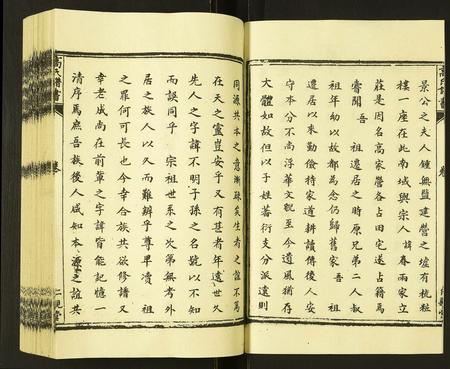 景公之夫人鍾無鹽建營之墟有梳粧
樓一座在此南域與宗人諱春兩家立
莊是因名高家營各占田宅遂占籍焉
嘗聞 吾 祖遷居之時原兄弟二人叔
祖年幼以故鄉為念仍歸舊家 吾 祖
遷居以來勤儉持家道耕讀傳後人安
守本分不尚浮華文貌至今遺風猶存
大體如故但以子姓蕃衍支分派遠則
同源共本之意漸疎矣生者之誼不篤
在天之靈豈安乎又有甚者年遠世久
先人之字諱不明子孫之名號以不知
而誤同乎 宗祖世系之次第無考外
居之族人以久而難辨乎尊卑瀆 祖
之罪何可長也今幸合族共欲修譜又
幸老成尚在前輩之字諱皆能記憶一
清序焉庶吾族後人咸知本源之誼共
高氏譜書
卷
仁親堂